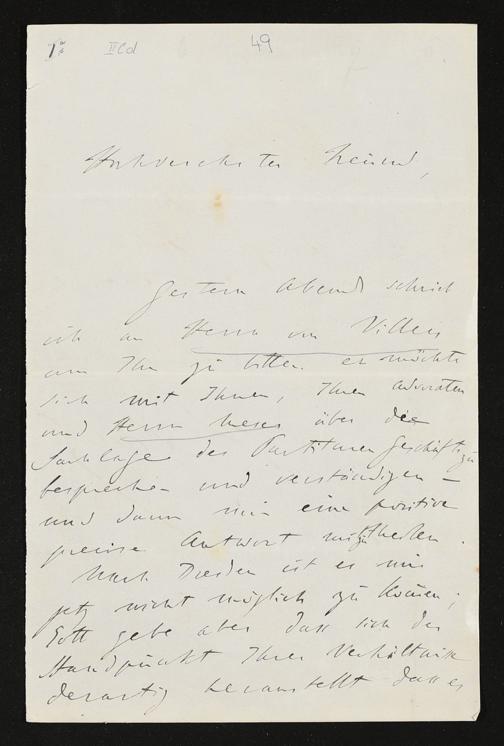 IICd 49
Hochverehrter Freund,
Gestern Abend schrieb
ich an Herrn von Villers
um Ihn zu bitten er möchte
sich mit Ihnen, Ihren Advocaten
und Herrn Meser über die
Sachlage des Partituren Geschäfts zu
besprechen und verständigen –
und dann mir eine positive
precise Antwort mitzutheilen.
Nach Dresden ist es mir
jetz nicht möglich zu kommen;
Gott gebe aber dass sich der
Standpunkt Ihrer Verhältnisse
derartig herausstellt dass es